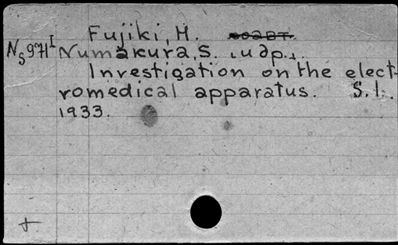 Fujiki, H.
Ns971I Numakura, S. и др.
Investigation on the elect-
romedical apparatus. S.l.
1933.